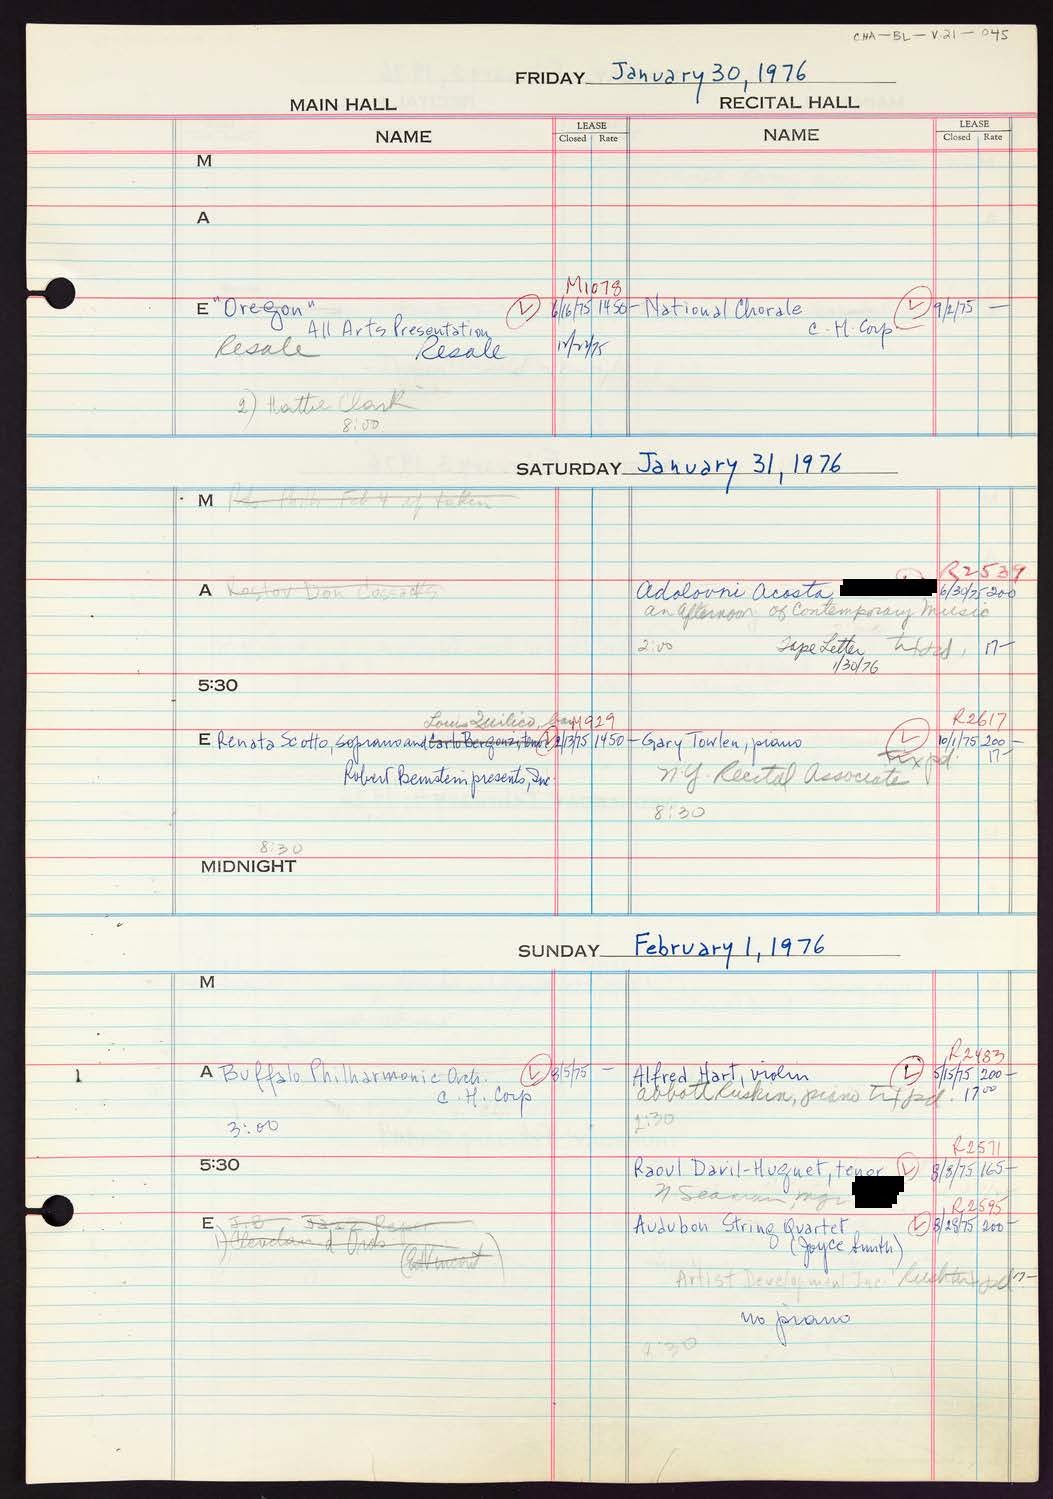 CHA-BL-V.21-045
FRIDAY January 30, 1976
MAIN HALL RECITAL HALL
NAME LEASE Closed Rate NAME LEASE Closed Rate
M
A
M1078
E "Oregon" 6/16/75 1450- National Chorale 9/2/75 —
All Arts Presentation C.H. Corp
Resale Resale 12/22/75
2) Hattie Clark
8:00
SATURDAY January 31, 1976
M Feb 4 if taken
R2539
A Rostov Don Cossacks Adolovni Acosta 6/30/75 200
an Afternoon of Contemporary Music
2:00 Tape Letter 17-
1/30/76
5:30
Louis Quilico, bar M929 R2617
E Renata Scotto, soprano and Carlo Bergonzi, tenor 2/3/75 1450- Gary Towlen, piano 10/1/75 200-
Robert Bernstein presents, Inc. trix pd. 17-
N.Y. Recital Associates
8:30
8:30
MIDNIGHT
SUNDAY February 1, 1976
M
R2483
1 A Buffalo Philharmonic Orch. 3/5/75 — Alfred Hart, violin 5/15/75 200-
C.H. Corp Abbott Ruskin, piano trix pd. 17.00
3:00 2:30
R2571
5:30 Raoul Davil-Huguet, tenor 8/8/75 165-
N Seaman, mgr
R2595
E Audubon String Quartet 8/28/75 200-
1) Cleveland Orch (Joyce Smith)
Artist Development Inc. pd 17-
no piano
8:30